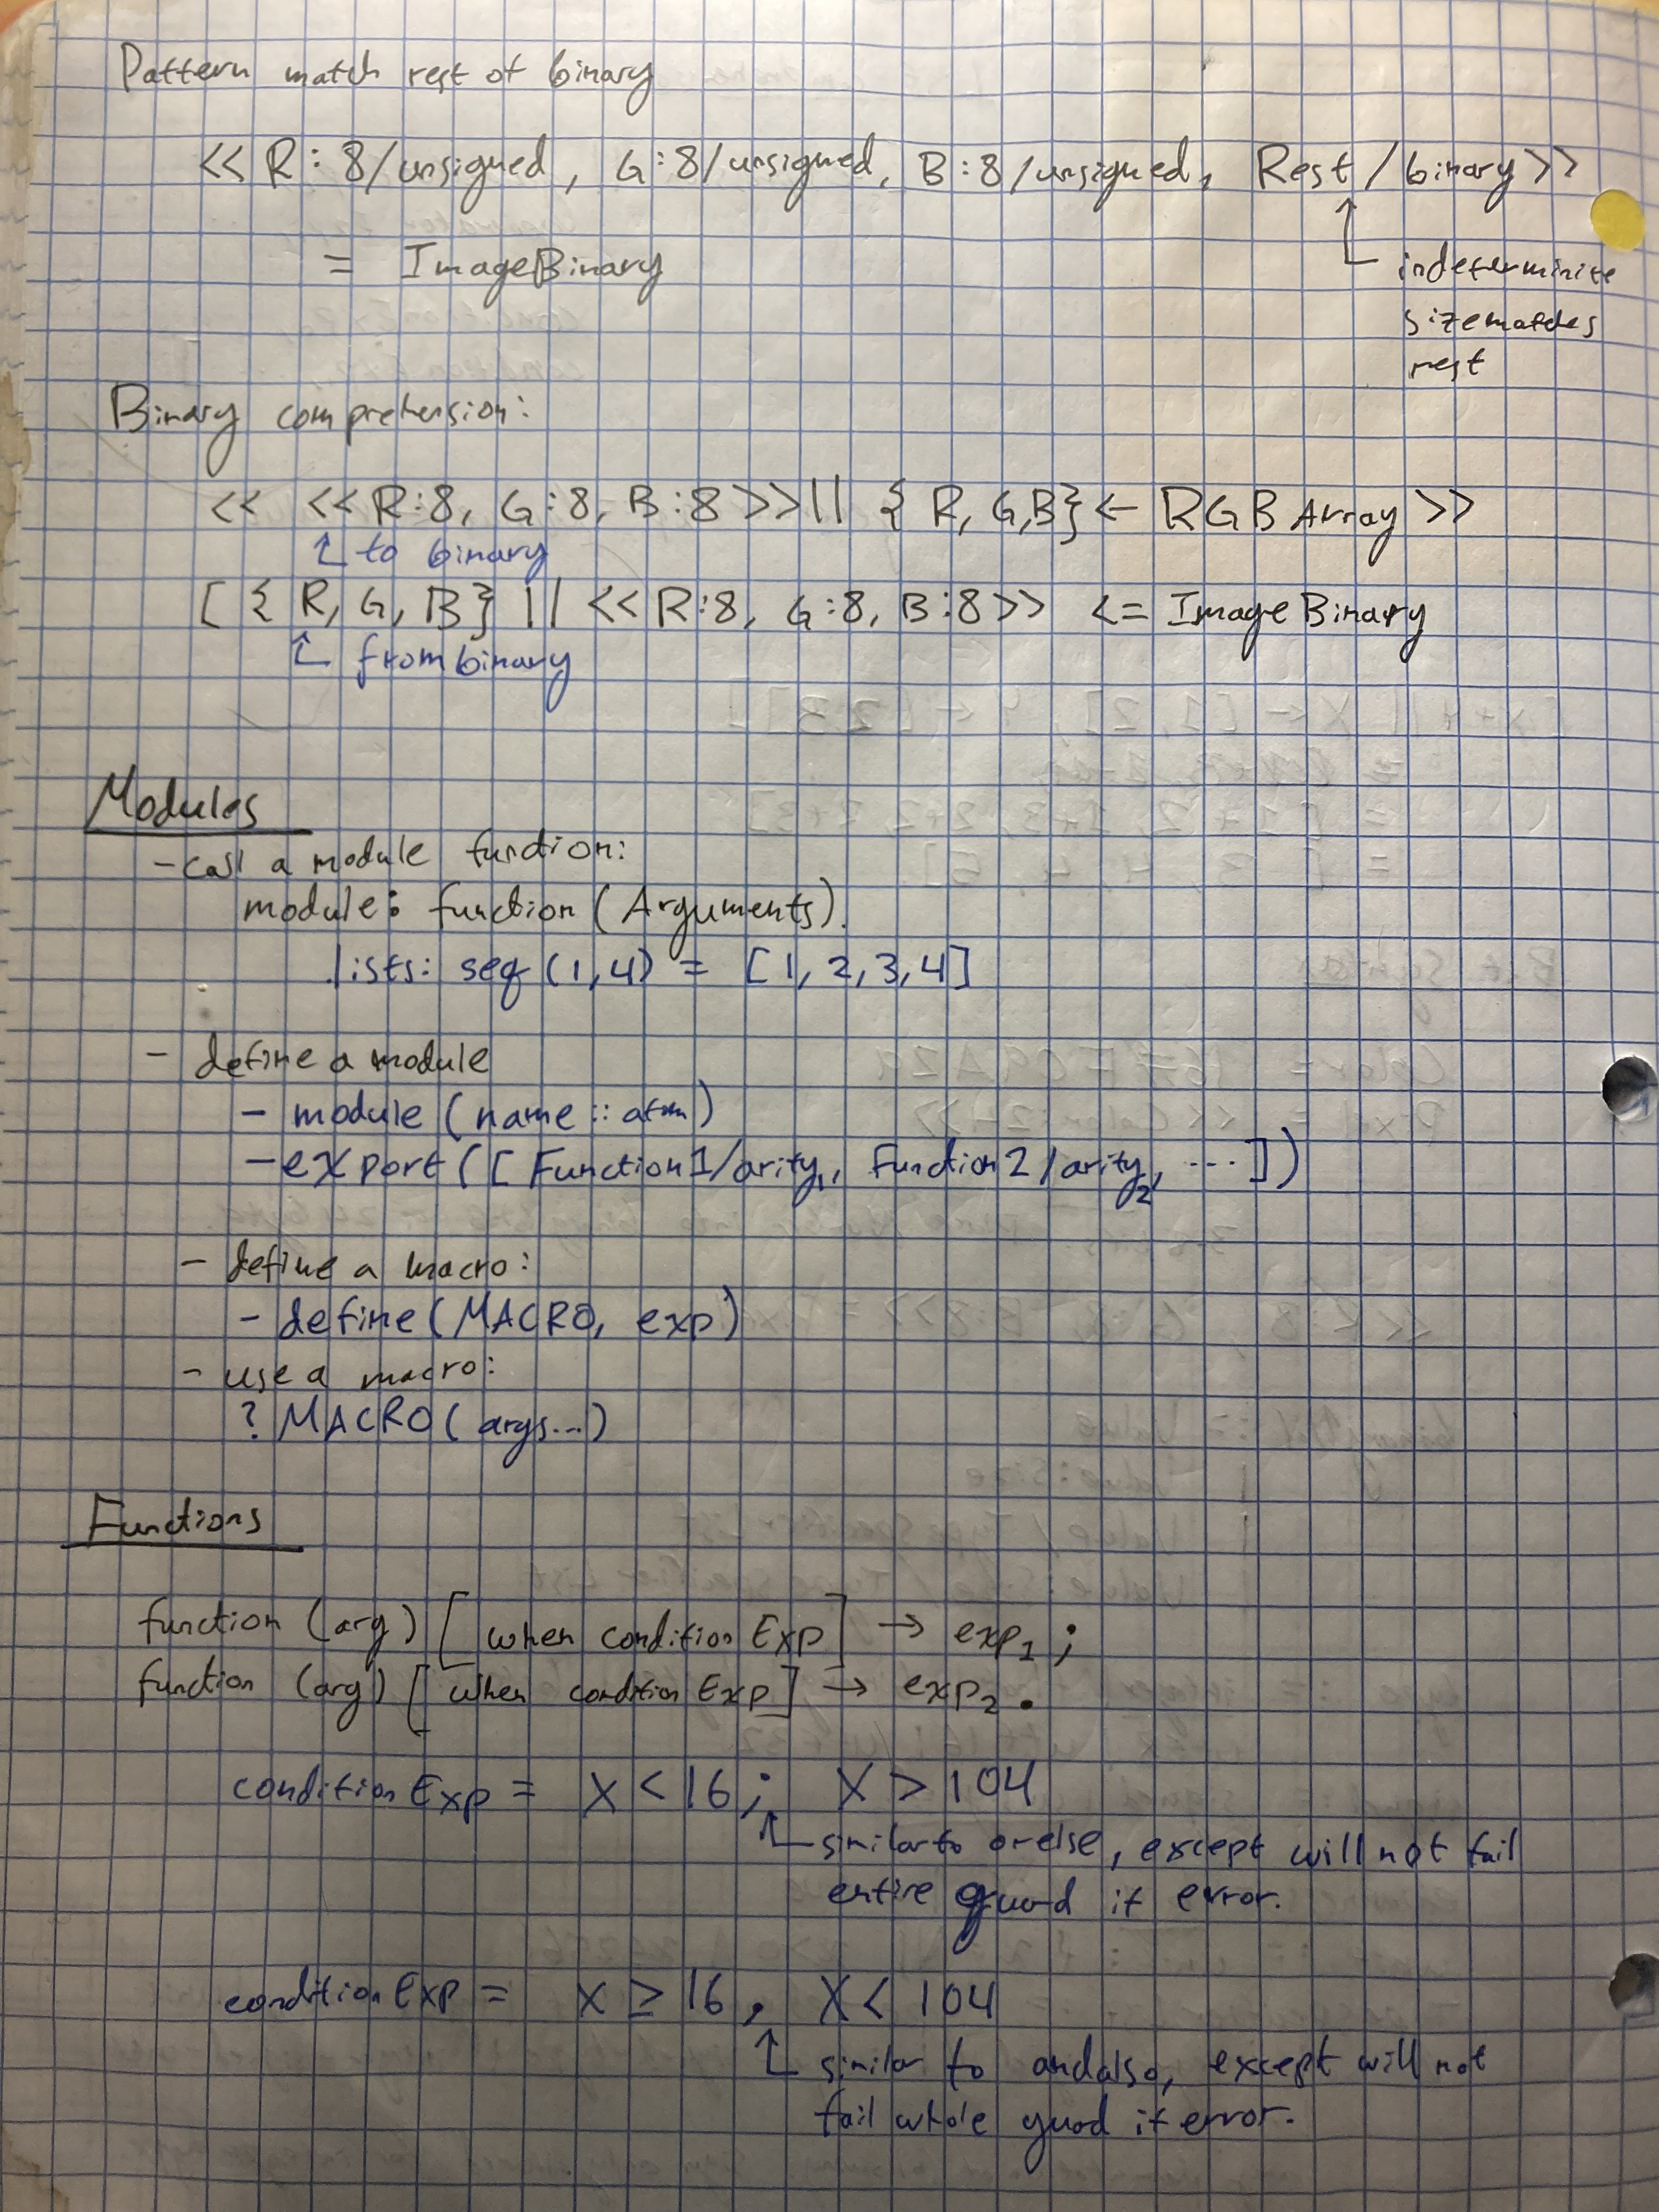 Pattern match rest of binary
<< R: 8/unsigned, G:8/unsigned, B:8/unsigned, Rest/binary>>
= ImageBinary
indeterminite
size matches
rest
Binary comprehension:
<< <<R:8, G:8, B:8>>|| {R,G,B}<- RGBArray >>
to binary
[{R, G, B} || <<R:8, G:8, B:8>> <= ImageBinary
from binary
Modules
- call a module function:
module: function (Arguments).
lists: seq (1,4) = [1, 2, 3, 4]
- define a module
- module (name :: atom)
- export ([Function1/arity1, Function2/arity2, ...])
- define a macro:
- define (MACRO, exp)
- use a macro:
?MACRO(args...)
Functions
function (arg) [when conditionExp] → exp1;
function (arg) [when conditionExp] → exp2.
conditionExp = X < 16; X > 104
similar to orelse, except will not fail
entire guard if error.
conditionExp = X ≥ 16, X < 104
similar to andalso, except will not
fail whole guard if error.